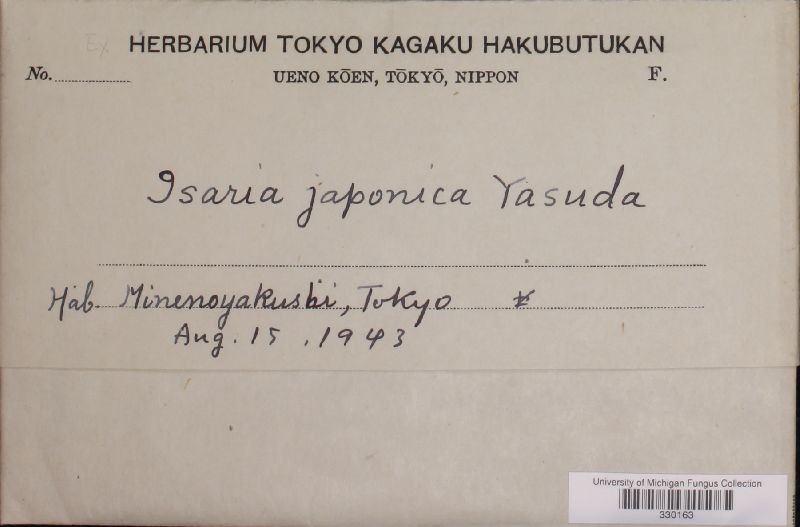 Ex HERBARIUM TOKYO KAGAKU HAKUBUTUKAN
No. UENO KŌEN, TŌKYŌ, NIPPON F.
Isaria japonica Yasuda
Hab. Minenoyakushi, Tokyo
Aug. 15, 1943
University of Michigan Fungus Collection
330163